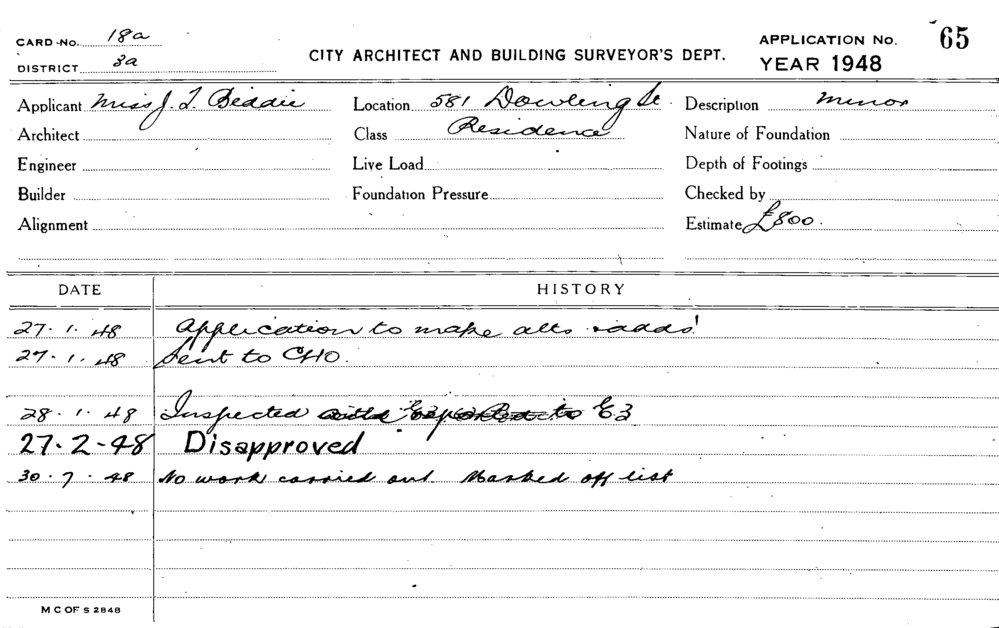 CARD No. 18a
DISTRICT 3a
CITY ARCHITECT AND BUILDING SURVEYOR'S DEPT.
APPLICATION No. 65
YEAR 1948
Applicant Miss J. T. Beddie Location 581 Dowling St Description minor
Architect Class Residence Nature of Foundation
Engineer Live Load Depth of Footings
Builder Foundation Pressure Checked by
Alignment Estimate £800.
DATE HISTORY
27.1.48 Application to make alts & adds.
27.1.48 Sent to CHO.
28.1.48 Inspected E3
27.2-48 Disapproved
30.7.48 No work carried out Marked off list
M C OF S 2848